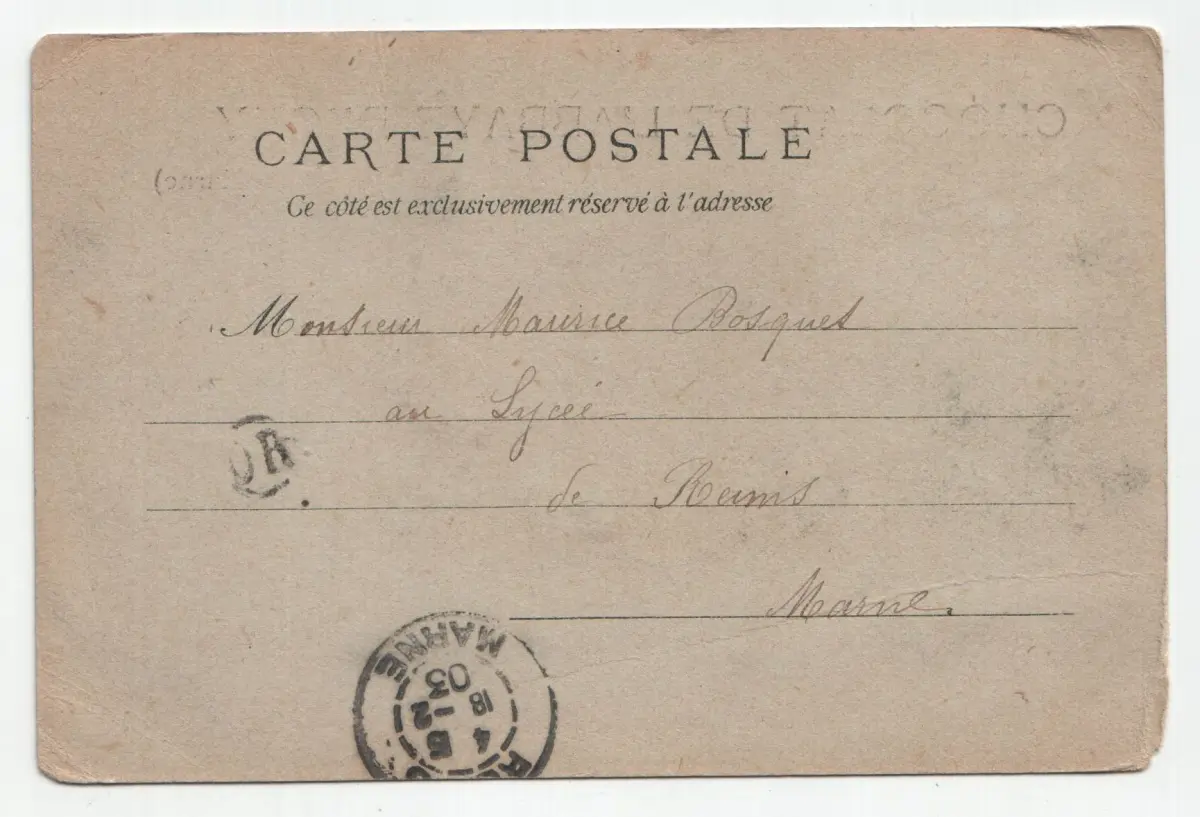 CARTE POSTALE
Ce côté est exclusivement réservé à l'adresse
Monsieur Maurice Bosquet
au Lycée
de Reims
Marne.
OR
MARNE
03
18 -12
4 5